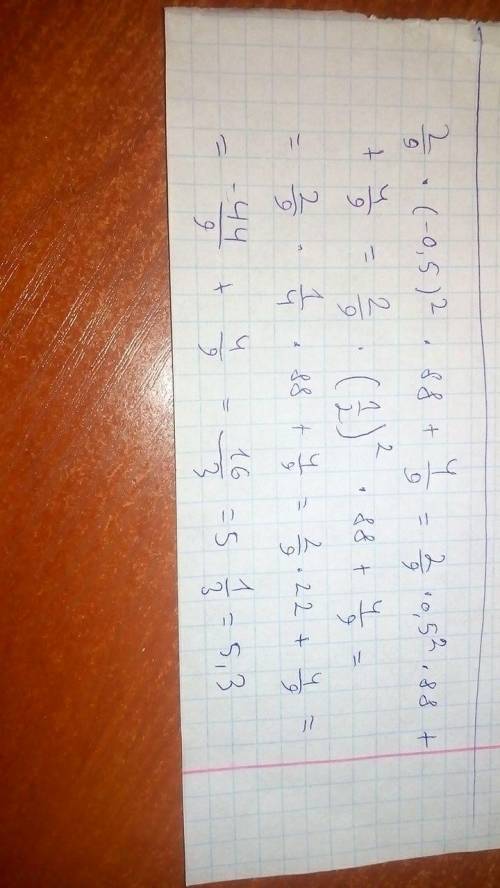 2/9 · (-0,5)² · 88 + 4/9 = 2/9 · 0,5² · 88 +
+ 4/9 = 2/9 · (1/2)² · 88 + 4/9 =
= 2/9 · 1/4 · 88 + 4/9 = 2/9 · 22 + 4/9 =
= 44/9 + 4/9 = 16/3 = 5 1/3 = 5,3